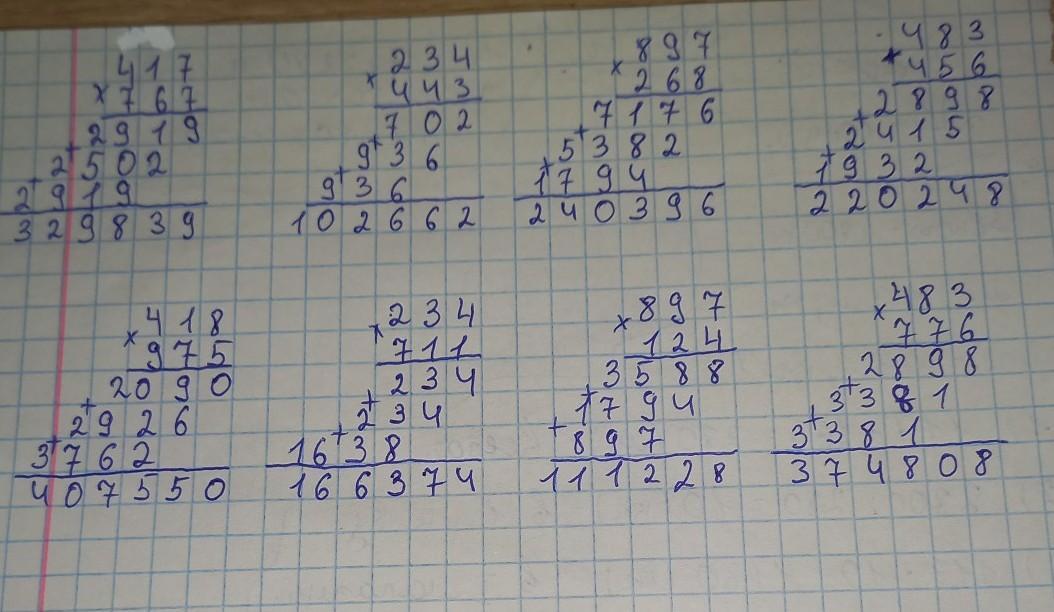 417
× 767
2919
+ 2502
+ 2919
329839
234
× 443
702
+ 936
+ 936
102662
897
× 268
7176
+ 5382
+ 1794
240396
483
× 456
2898
+ 2415
+ 1932
220248
418
× 975
2090
+ 2926
+ 3762
407550
234
× 711
234
+ 234
+ 1638
166374
897
× 124
3588
+ 1794
+ 897
111228
483
× 776
2898
+ 3381
+ 3381
374808